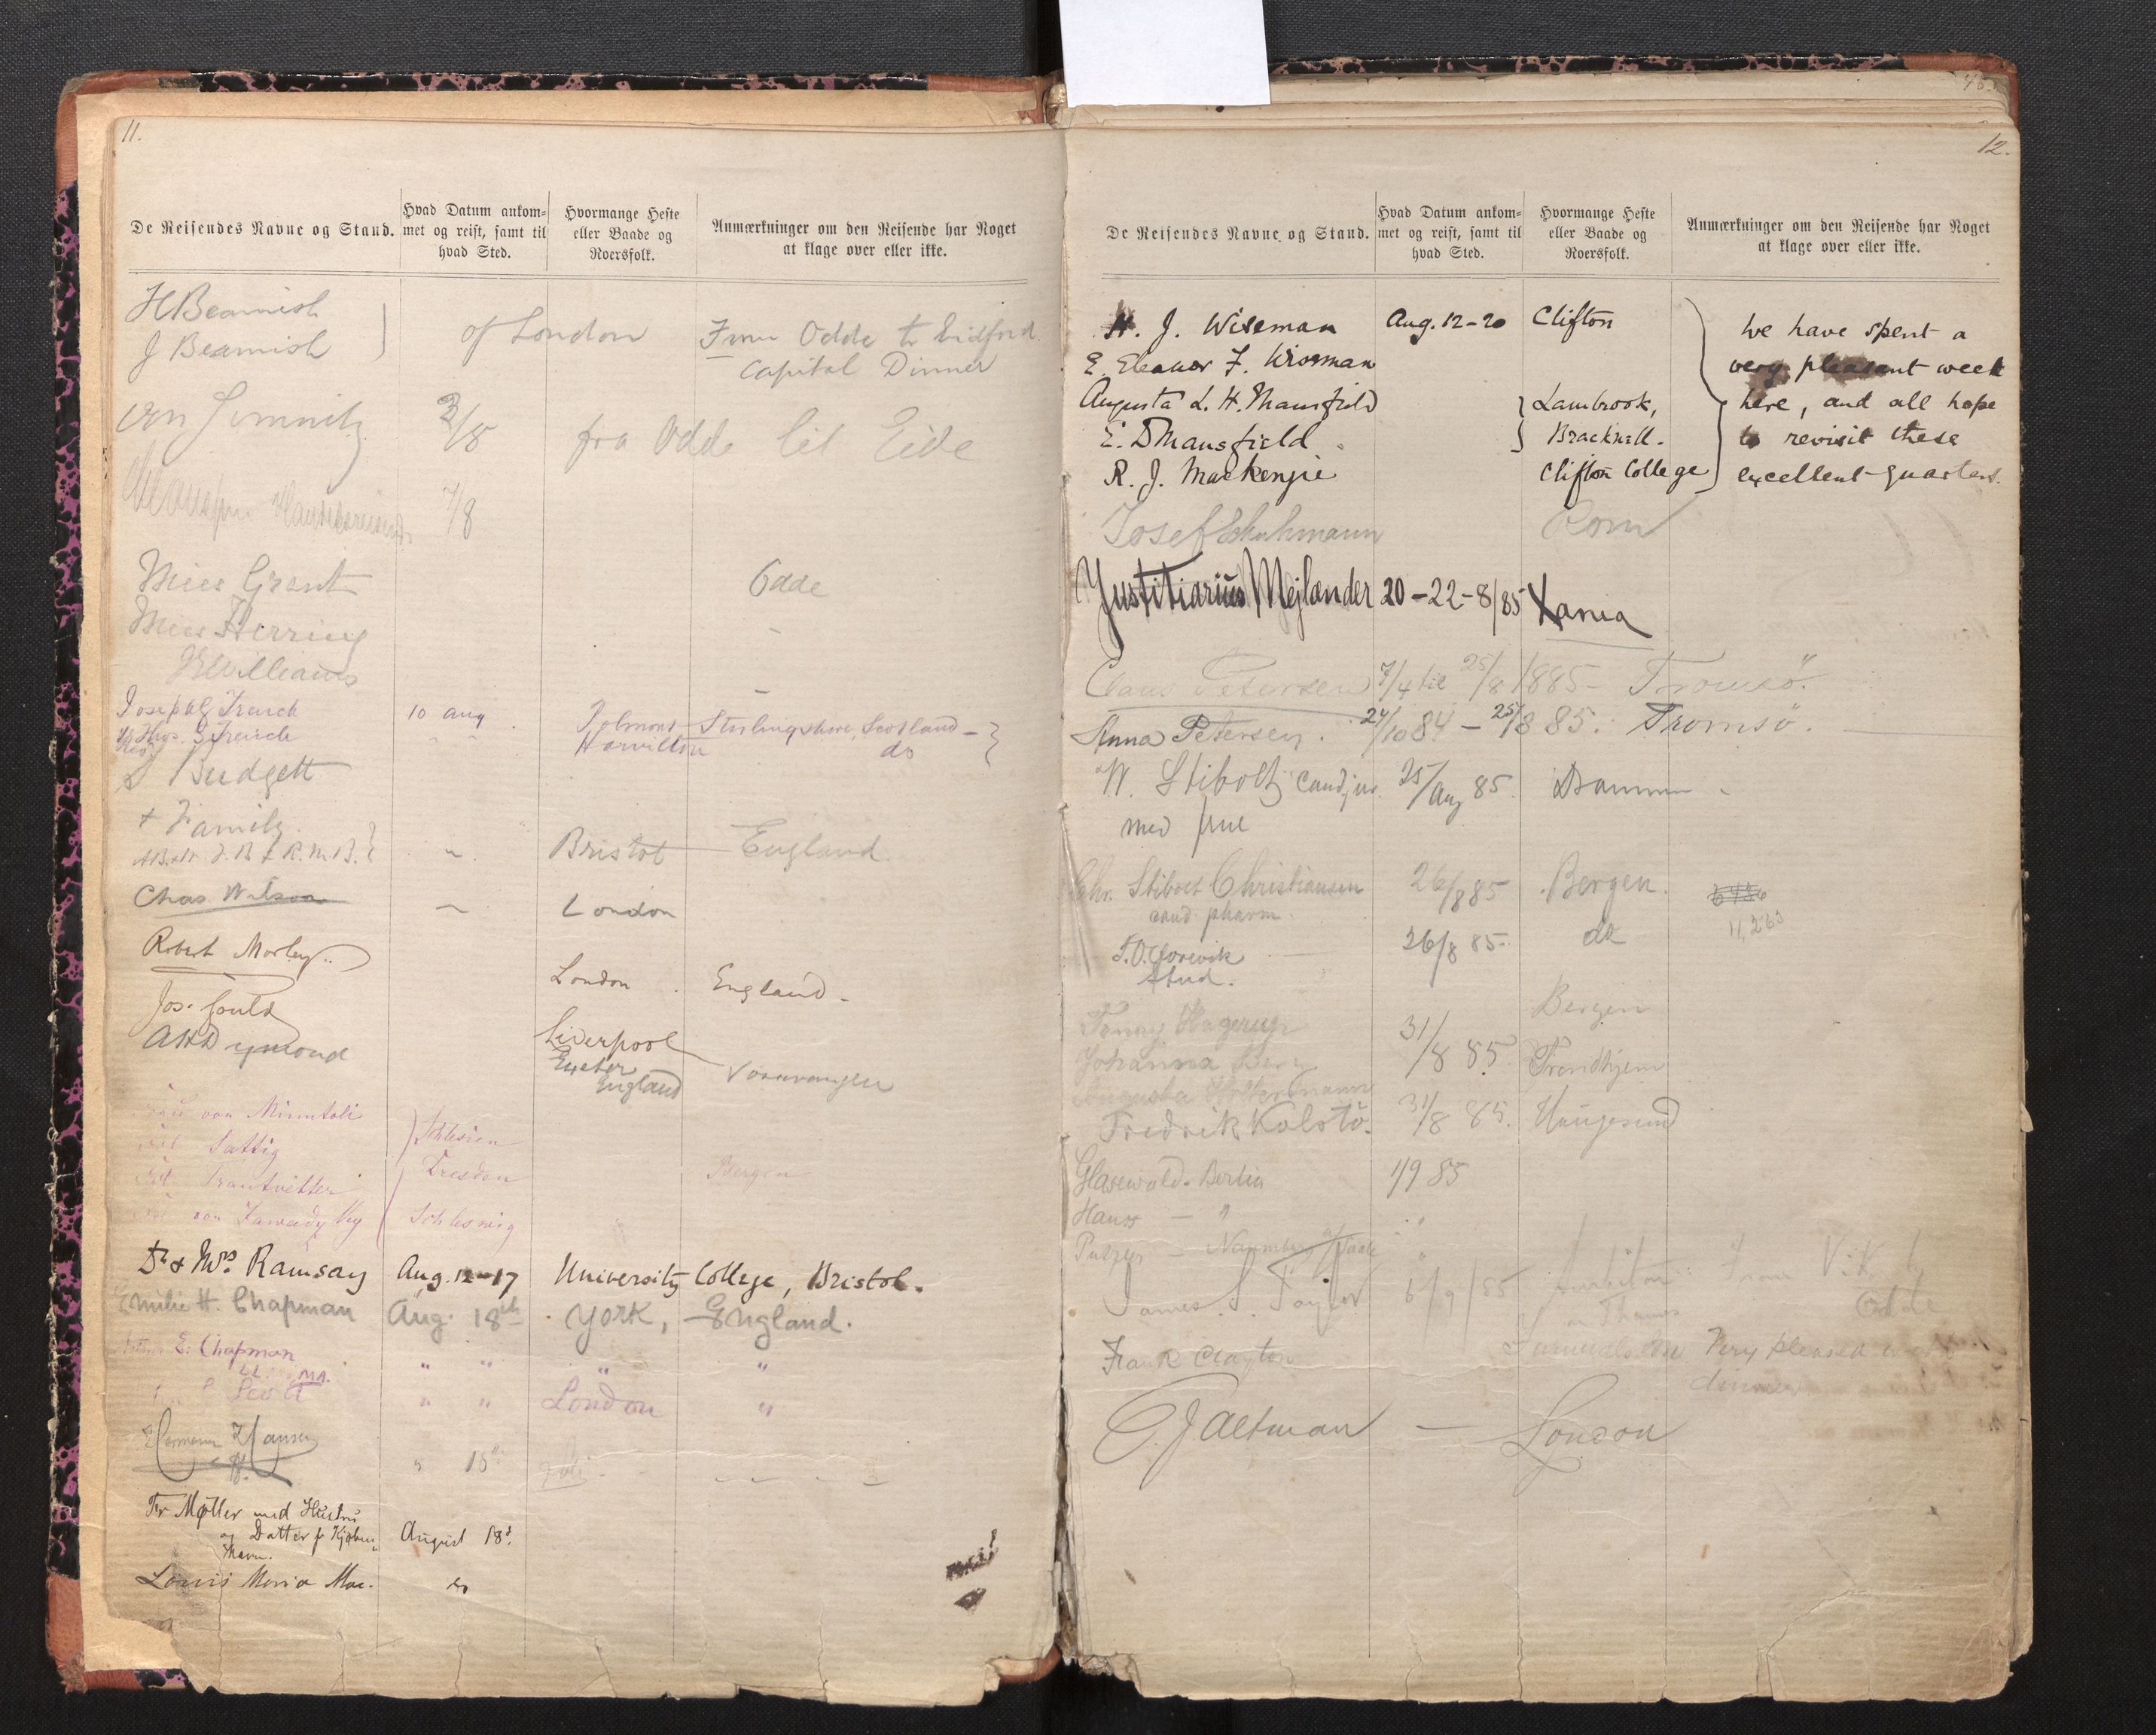 11.
De Reisendes Navne og Stand.
Hvad Datum ankom-
met og reist, samt til
hvad Sted.
Hvormange Heste
eller Baade og
Roersfolk.
Anmærkninger om den Reisende har Noget
at klage over eller ikke.
H Beamish
J Beamish } of London From Odde to Eidfjord
Capital Dinner
fra Odde til Eide
7/8
Miss Grant Odde
Miss Herring -
Williams -
Joseph French 10 aug. Stirlingshire, Scotland - }
French " " Hamilton do
S Budgett
+ Family. " Bristol England
Chas. Wilson " London
Robert Morley.. London England -
Jos. Gould Liverpool
A H Dymond Exeter
England Vossevangen
von Minutoli } Schlesien
Sattig
Trautvetter Dresden Bergen
von Schleswig
Dr & Mrs Ramsay Aug. 12-17 University College, Bristol.
Emilie H. Chapman Aug. 18th York, England.
E. Chapman " " " "
MA.
Scott " " London "
Hermann Hansen " 18
Fr Møller med Hustru
og Datter fr Kjøben-
havn. August 18d.
Louis Maria Moe. do
12.
De Reisendes Navne og Stand.
Hvad Datum ankom-
met og reist, samt til
hvad Sted.
Hvormange Heste
eller Baade og
Roersfolk.
Anmærkninger om den Reisende har Noget
at klage over eller ikke.
H. J. Wiseman Aug. 12-20 Clifton We have spent a
E. Eleanor F. Wiseman very pleasant week
Augusta L. H. Mansfield } Lambrook, here, and all hope
E. D Mansfield Bracknell. to revisit these
R. J. Mackenzie Clifton College } excellent quarters.
Josef Schuhmann Rom
Justitiarius Mejlænder 20-22-8/85 Xania
Claus Petersen 7/4 til 25/8 1885 - Tromsö.
Anna Petersen. 24/10 84 - 25/8 85. Tromsö.
W. Stibolt cand jur. 25/Aug 85. Drammen
med frue
Chr. Stibolt Christiansen 26/8 85 Bergen.
cand. pharm. 11,263
26/8 85. do
stud.
Fanny Hagerup 31/8 85 Bergen
Johanna Trondhjem
Augusta
Fredrik Kolstö. 31/8 85. Haugesund
Glasewald - Berlin 1/9 85
Hans - "
Naumburg a/Saale "
James S. Taylor 6/9/85 From Vik to
on Thames Odde
Frank Clayton Very pleased with
dinner
C. J Altman - London